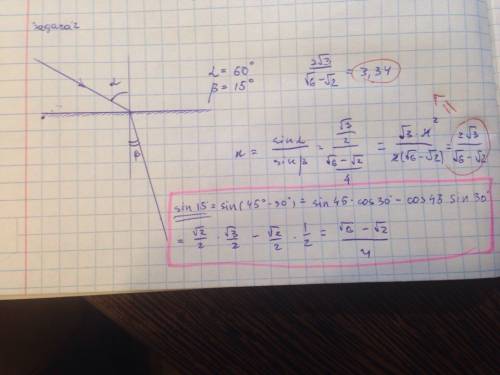 Задача 2
α
β
α = 60°
β = 15°
2√3 / (√6 - √2) = 3,34
n = sin α / sin β = (√3/2) / ((√6 - √2)/4) = √3 · 4² / 2(√6 - √2) = 2√3 / (√6 - √2)
sin 15 = sin(45° - 30°) = sin 45 · cos 30° - cos 45 · sin 30°
= √2/2 · √3/2 - √2/2 · 1/2 = (√6 - √2) / 4